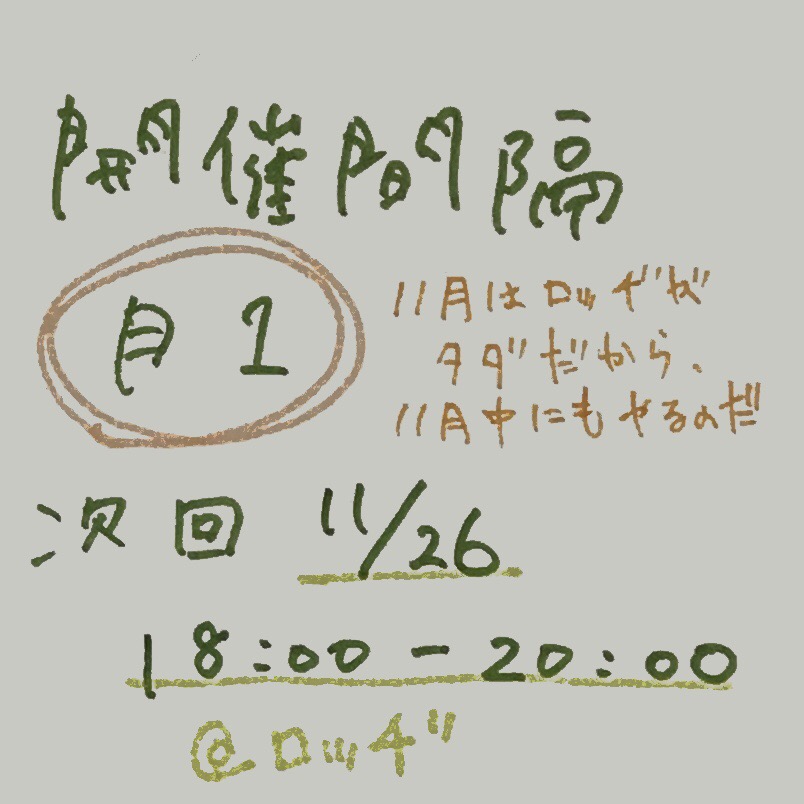 開催間隔
月1
11月はロッヂが
タダだから、
11月中にもやるのだ
次回 11/26
18:00-20:00
@ロッヂ